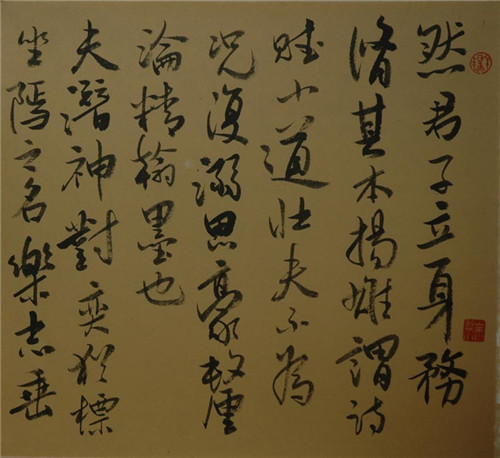 然君子立身務
脩其本揚雄謂詩
賦小道壯夫不為
况復溺思豪釐
淪精翰墨也
夫潛神對奕猶標
坐隱之名樂志垂